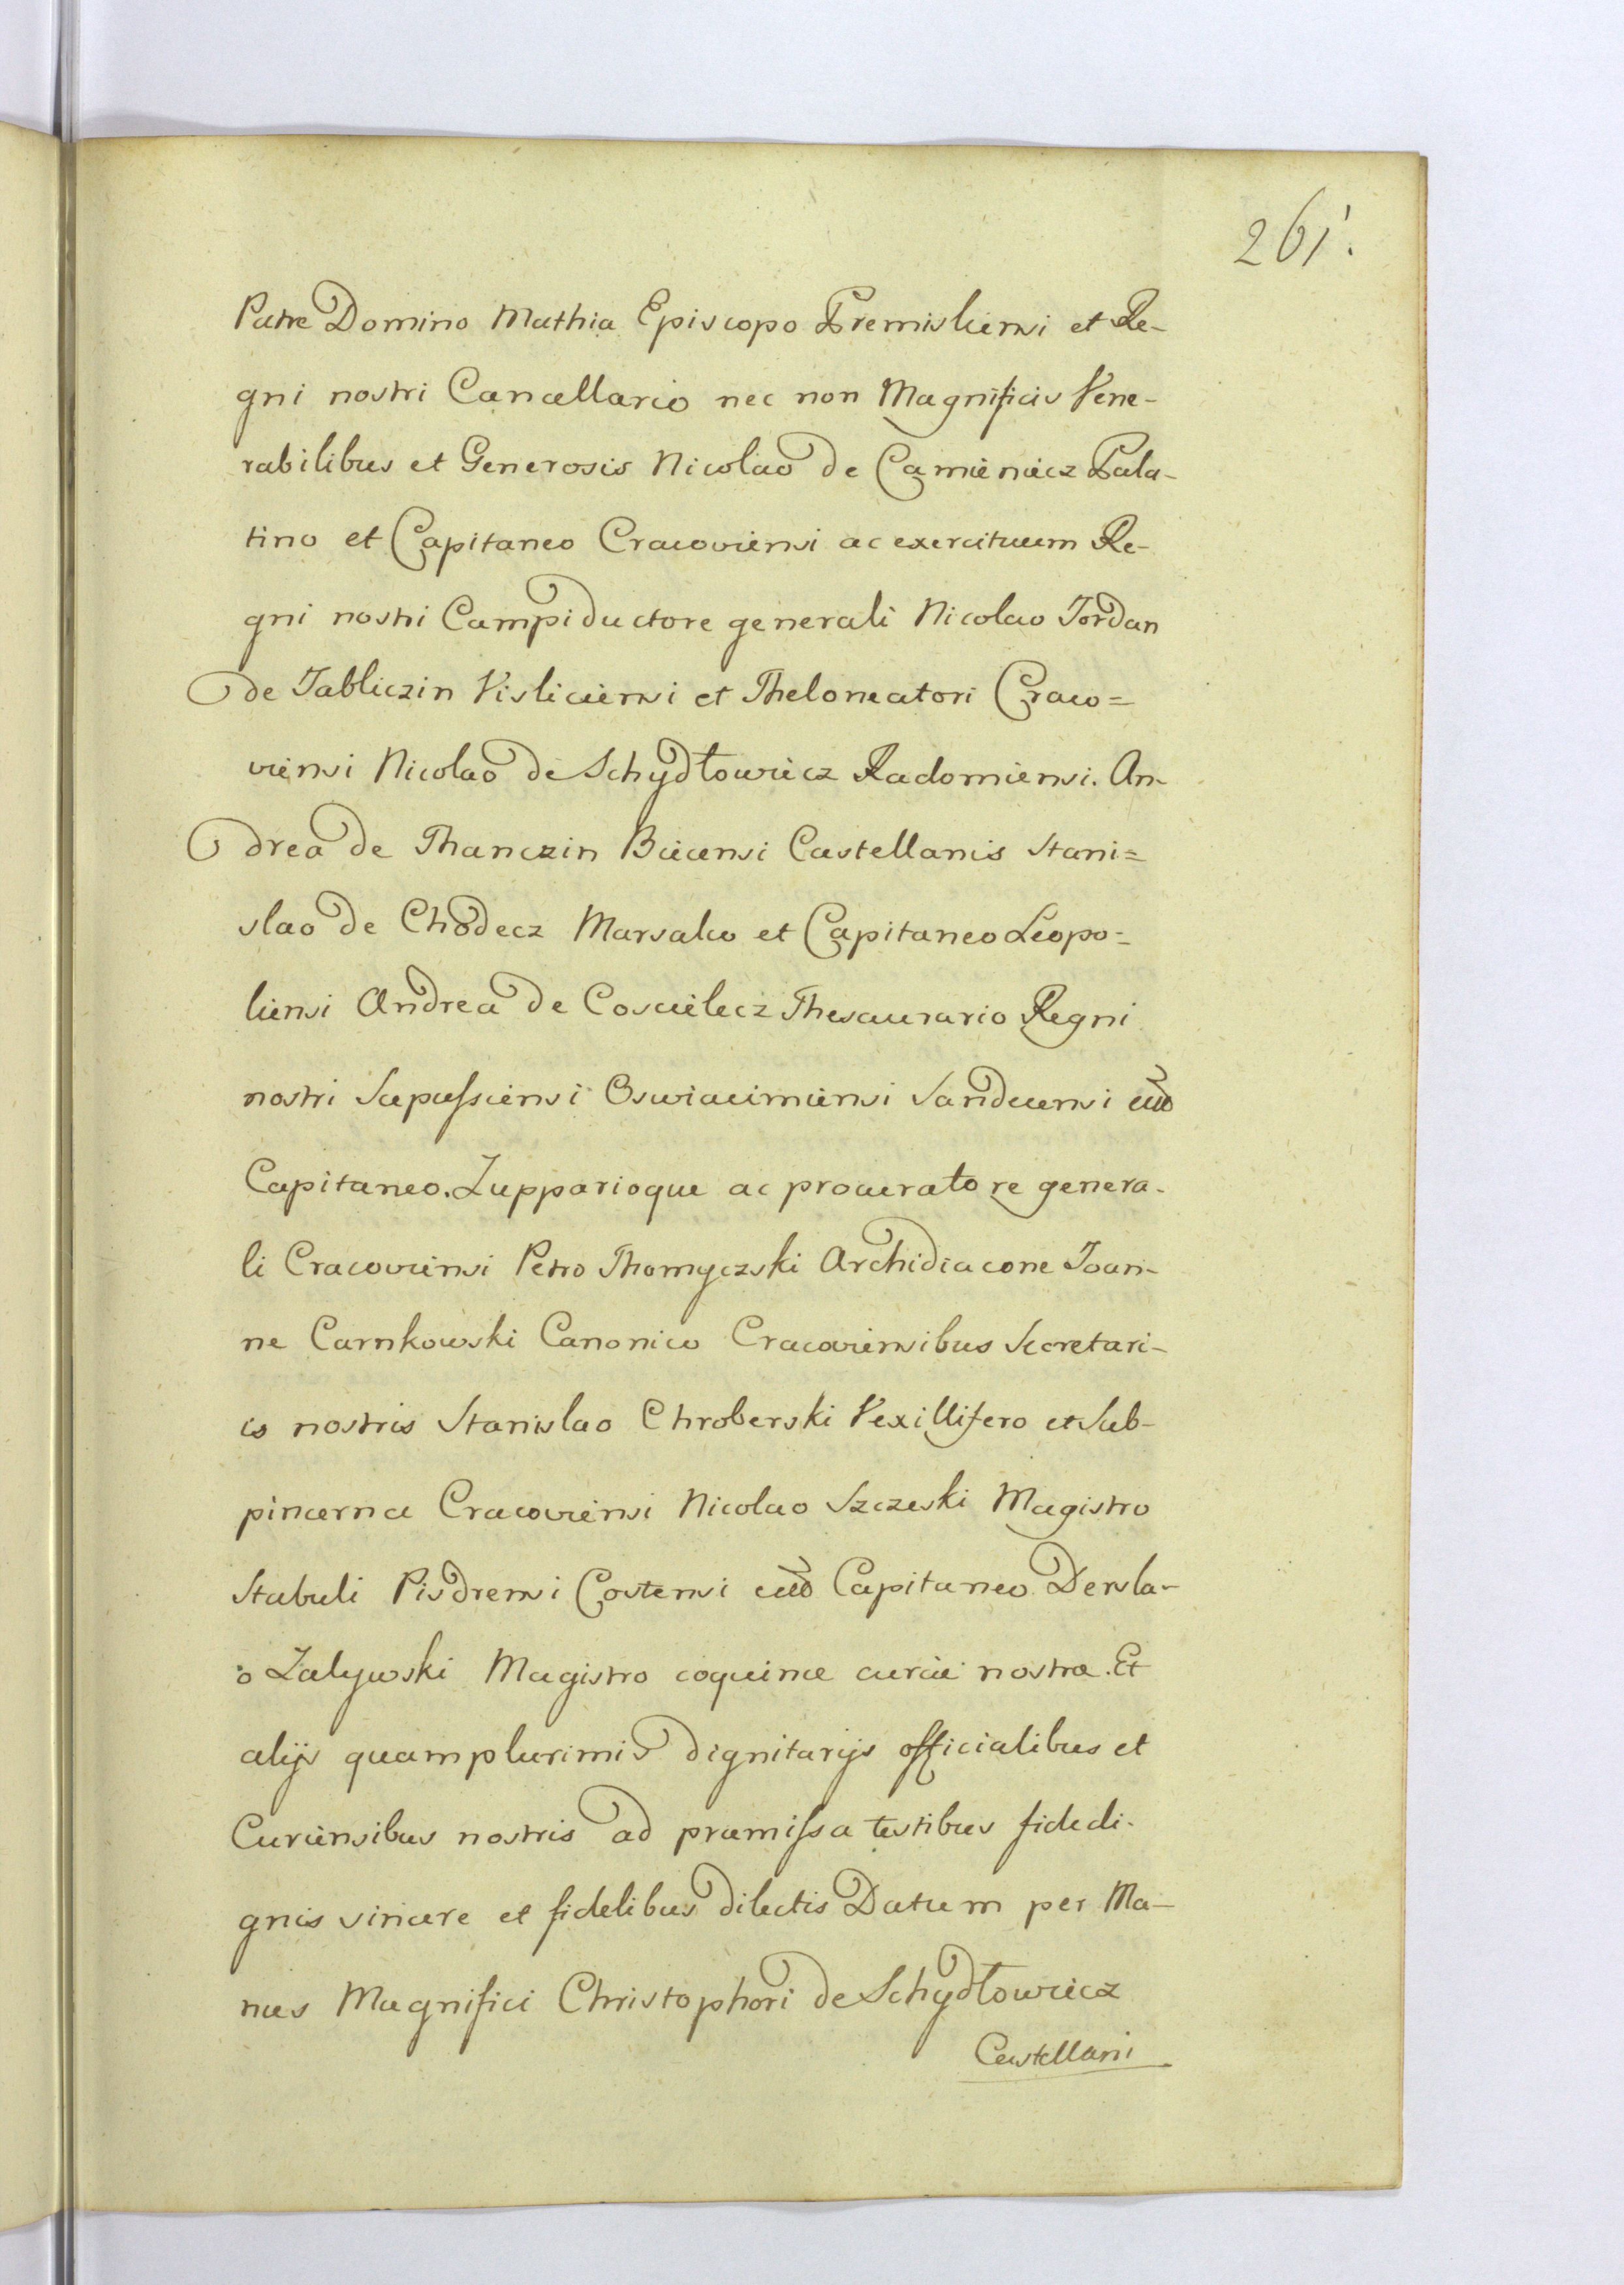 261.
Patre Domino Mathia Episcopo Premisliensi et Re-
gni nostri Cancellario nec non Magnificis Vene-
rabilibus et Generosis Nicolao de Camieniecz Pala-
tino et Capitaneo Cracoviensi ac exercituum Re-
gni nostri Campiductore generali Nicolao Jordan
de Zabliczin Visliciensi et Theloneatori Craco=
viensi Nicolao de Schydłowiecz Radomiensi. An-
drea de Thanczin Biecensi Castellanis Stani=
slao de Chodecz Marsalco et Capitaneo Leopo=
liensi Andrea de Coscielecz Thesaurario Regni
nostri Scepussiensi Oswiecimiensi Sandecensi
Capitaneo. Zupparioque ac procuratore genera-
li Cracoviensi Petro Thomyczski Archidiacone Joan-
ne Carnkowski Canonico Cracoviensibus Secretari-
is nostris Stanislao Chroberski Vexillifero et Sub-
pincerna Cracoviensi Nicolao Szczeski Magistro
Stabuli Pisdrensi Costensi Capitaneo Dersla-
o Zalywski Magistro coquinæ curiæ nostræ. Et
alijs quamplurimis dignitarijs officialibus et
Curiensibus nostris ad præmissa testibus fidedi-
gnis sincere et fidelibus dilectis Datum per Ma-
nus Magnifici Christophori de Schydłowiecz
Castellani